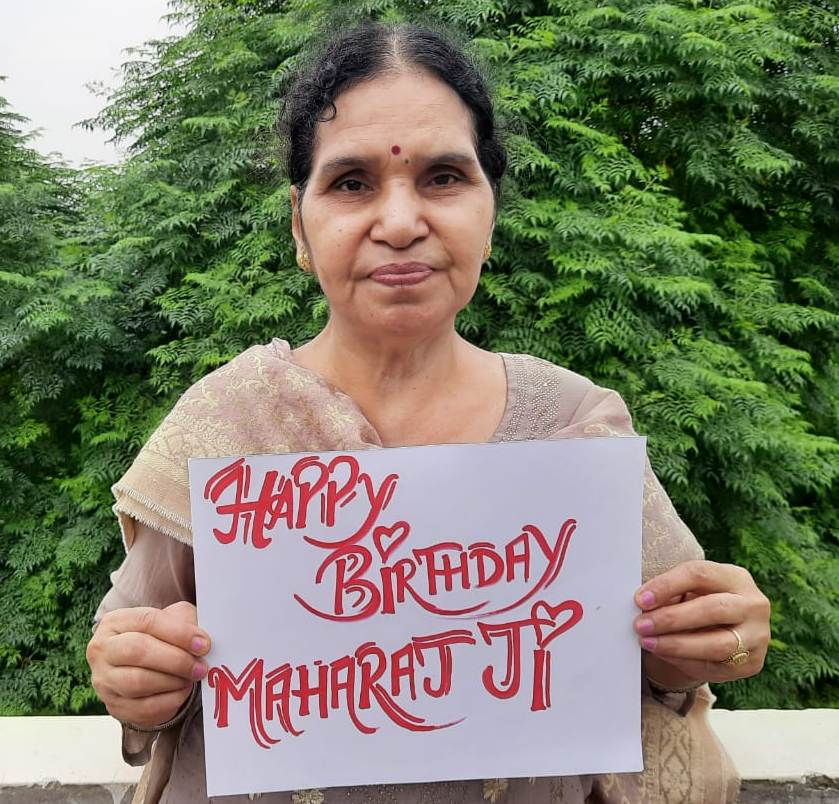 HAPPY
BiRTHDAY
MAHARAJ Ji